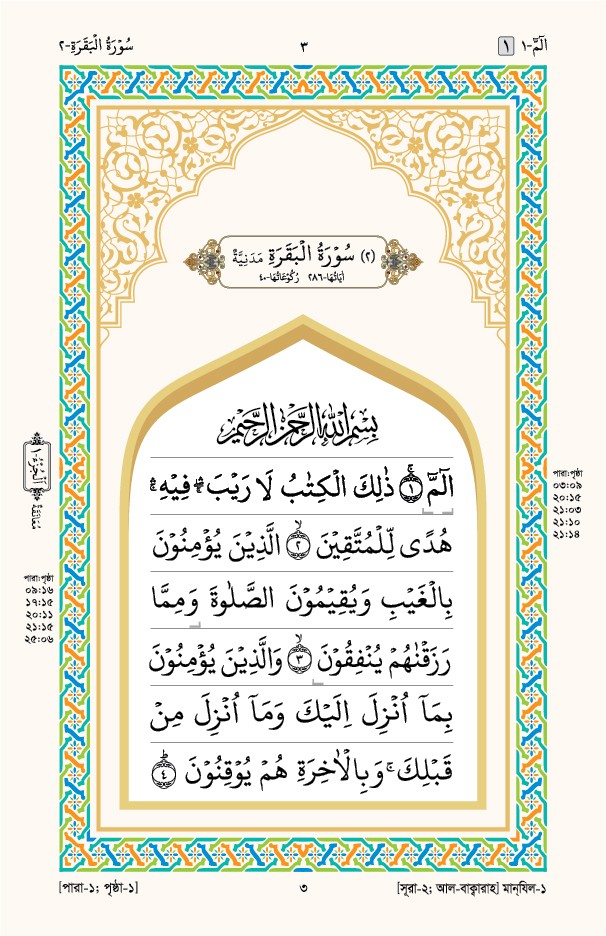 الٓمّٓ-١ ١
٣
سُوْرَةُ الْبَقَرَةِ-٢
(٢) سُوْرَةُ الْبَقَرَةِ مَدَنِيَّةٌ
اٰيَاتُهَا-٢٨٦ رُكُوْعَاتُهَا-٤٠
بِسْمِ اللّٰهِ الرَّحْمٰنِ الرَّحِيْمِ
الٓمّٓ ۚ﴿١﴾ ذٰلِكَ الْكِتٰبُ لَا رَيْبَ ۛۖ فِيْهِ ۛۚ
هُدًى لِّلْمُتَّقِيْنَ ۙ﴿٢﴾ الَّذِيْنَ يُؤْمِنُوْنَ
بِالْغَيْبِ وَيُقِيْمُوْنَ الصَّلٰوةَ وَمِمَّا
رَزَقْنٰهُمْ يُنْفِقُوْنَ ۙ﴿٣﴾ وَالَّذِيْنَ يُؤْمِنُوْنَ
بِمَآ اُنْزِلَ اِلَيْكَ وَمَآ اُنْزِلَ مِنْ
قَبْلِكَ ۚ وَبِالْاٰخِرَةِ هُمْ يُوْقِنُوْنَ ؕ﴿٤﴾
পারা:পৃষ্ঠা
০৩:০৯
২০:১৫
২১:০৩
২১:১০
২১:১৪
اَلْجُزْءُ-١
مُعَانَقَة
পারা:পৃষ্ঠা
০৯:১৬
১৭:১৫
২০:১১
২১:১৫
২৫:০৬
[পারা-১; পৃষ্ঠা-১]
৩
[সূরা-২; আল-বাক্বারাহ] মানযিল-১